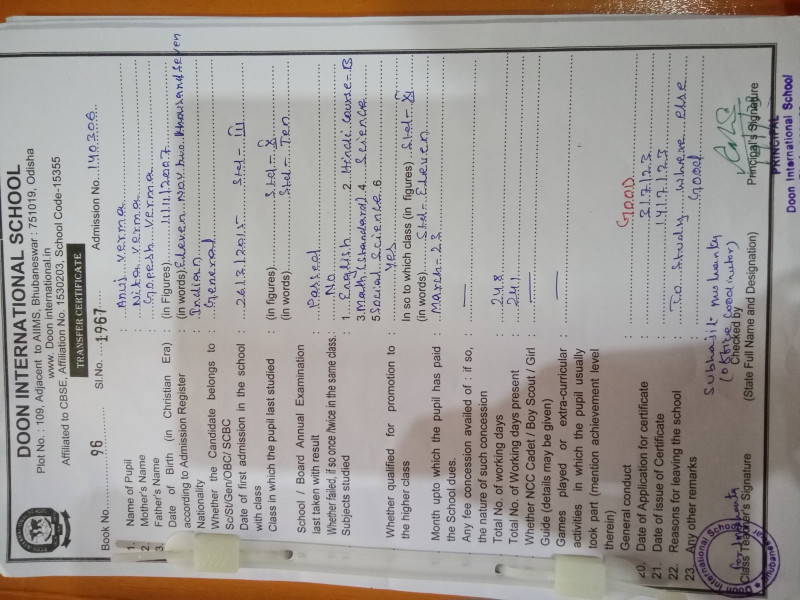 DOON INTERNATIONAL SCHOOL
Plot No. : 109, Adjacent to AIIMS, Bhubaneswar : 751019, Odisha
www. Doon international.in
Affiliated to CBSE, Affiliation No. 1530203, School Code-15355
TRANSFER CERTIFICATE
Book No. 96 Sl.No. 1967 Admission No. 140306
1. Name of Pupil : Anuj Verma
2. Mother's Name : Nita Verma
3. Father's Name : Gopesh Verma
Date of Birth (in Christian Era) : (in Figures) 11/11/2007
according to Admission Register (in words) Eleven Nov two thousand seven
Nationality : Indian
Whether the Candidate belongs to : General
Sc/St/Gen/OBC/ SCBC
Date of first admission in the school : 26/3/2015 Std - III
with class
Class in which the pupil last studied : (in figures) Std - X
(in words) Std - Ten
School / Board Annual Examination : Passed
last taken with result
Whether failed, if so once /twice in the same class. : No
Subjects studied : 1 English 2. Hindi Course - B
3. Math (Standard) 4. Science
5 Social Science 6
Whether qualified for promotion to : Yes
the higher class
In so to which class (in figures) Std - XI
(in words) Std - Eleven
Month upto which the pupil has paid : March - 23
the School dues.
Any fee concession availed of : if so, : —
the nature of such concession
Total No. of working days : 248
Total No. of Working days present : 241
Whether NCC Cadet / Boy Scout / Girl : —
Guide (details may be given)
Games played or extra-curricular : —
activities in which the pupil usually
took part (mention achievement level
therein)
General conduct : GOOD
20. Date of Application for certificate : 3/7/23
21. Date of issue of Certificate : 14/7/23
22. Reasons for leaving the school : To Study where else
23. Any other remarks : Good
Class Teacher's Signature
Checked by
(State Full Name and Designation)
Principal's Signature
PRINCIPAL
Doon International School